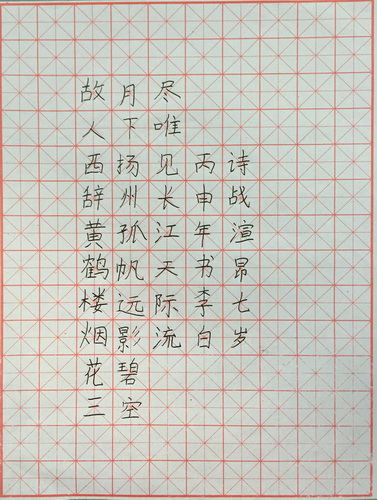 故人西辞黄鹤楼烟花三
月下扬州孤帆远影碧空
尽唯见长江天际流
丙申年书李白
诗战渲昂七岁